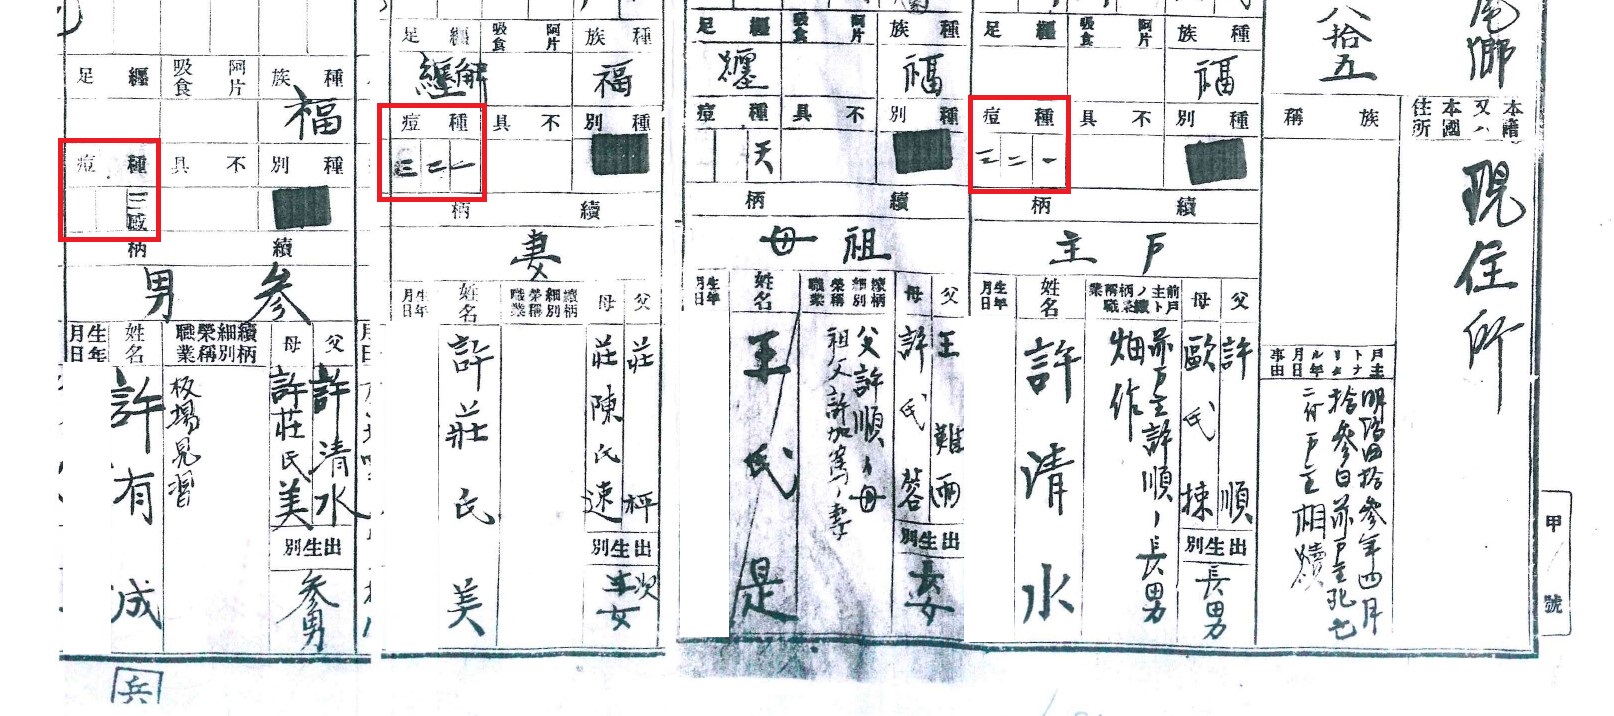 尾鄉
八拾五
本籍又ハ本國住所
現住所
族稱
戶主トナリタル年月日事由
明治四拾參年四月
拾參日前戶主死亡
ニ付戶主相續
種族
福
阿片吸食
纏足
種別
不具
種痘
一
二
三
續柄
戶主
父
許順
母
歐氏揀
出生別
長男
前戶主トノ續柄榮稱職業
前戶主許順ノ長男
畑作
姓名
許清水
生年月日
種族
福
阿片吸食
纏足
纏
種別
不具
種痘
天
續柄
祖母
父
王難雨
母
許氏
出生別
續柄細別榮稱職業
父許順ノ母
祖父許加篤ノ妻
姓名
王氏是
生年月日
種族
福
阿片吸食
纏足
解纏
種別
不具
種痘
一
二
三
續柄
妻
父
莊秤
母
莊陳氏速
出生別
次女
續柄細別榮稱職業
姓名
許莊氏美
生年月日
種族
福
阿片吸食
纏足
種別
不具
種痘
三感
續柄
參男
父
許清水
母
許莊氏美
出生別
參男
續柄細別榮稱職業
板場見習
姓名
許有成
生年月日
甲
號
兵